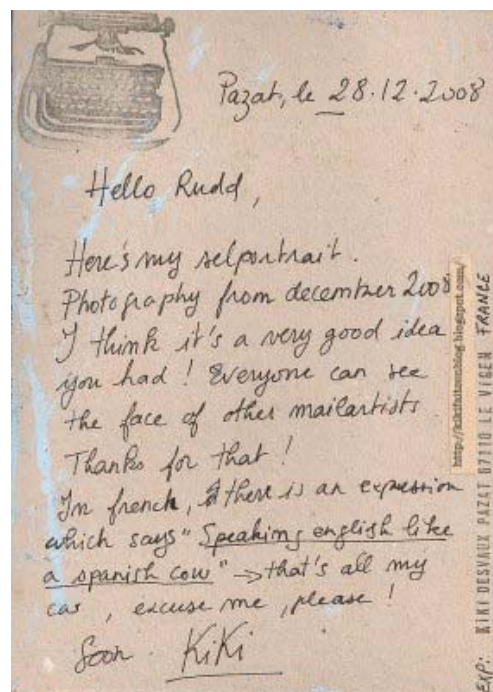 Pazat, le 28.12.2008
Hello Rudd,
Here's my selportrait.
Photography from december 2008.
I think it's a very good idea
you had! Everyone can see
the face of other mailartists
Thanks for that!
In french, there is an expression
which says "Speaking english like
a spanish cow" → that's all my
cas, excuse me, please!
Soon. KiKi
http://kikifutzenblog.blogspot.com/
EXP: KIKI DESVAUX PAZAT 87110 LE VIGEN FRANCE